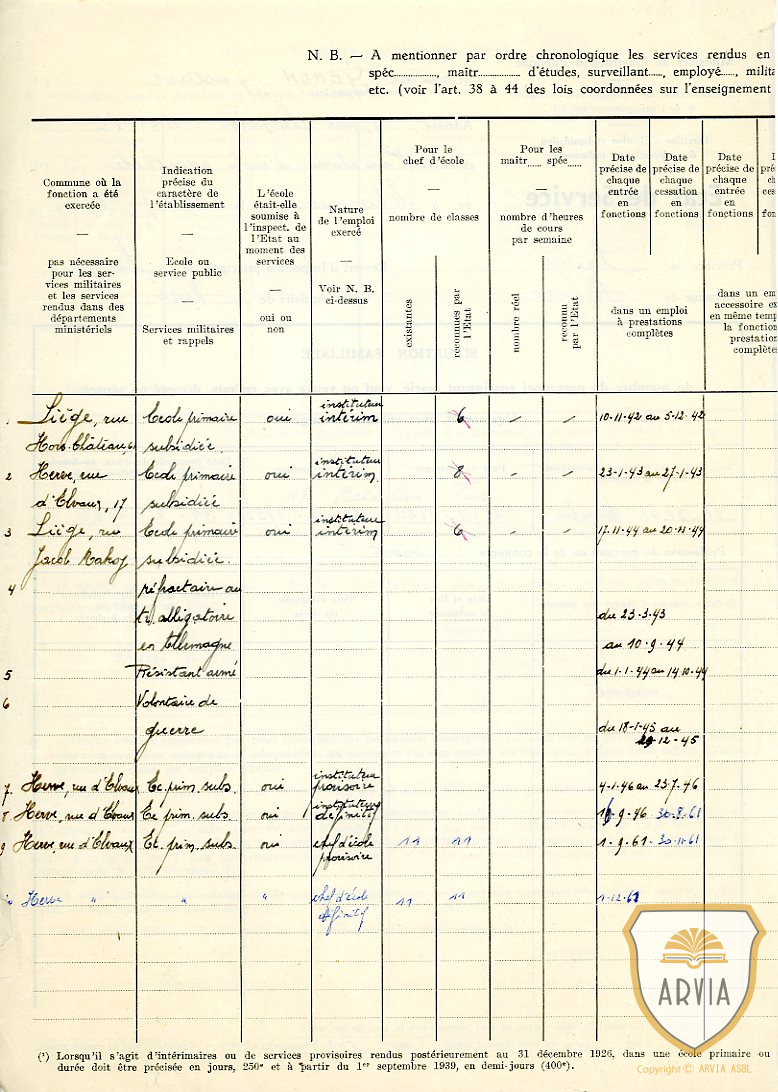 N. B. — A mentionner par ordre chronologique les services rendus en
spéc..............., maîtr............... d'études, surveillant....., employé....., milita
etc. (voir l'art. 38 à 44 des lois coordonnées sur l'enseignement
Commune où la
fonction a été
exercée
—
pas nécessaire
pour les ser-
vices militaires
et les services
rendus dans des
départements
ministériels
Indication
précise du
caractère de
l'établissement
—
Ecole ou
service public
—
Services militaires
et rappels
L'école
était-elle
soumise à
l'inspect. de
l'Etat au
moment des
services
—
oui ou
non
Nature
de l'emploi
exercé
—
Voir N. B.
ci-dessus
Pour le
chef d'école
—
nombre de classes
existantes
reconnues par
l'Etat
Pour les
maîtr..... spéc.....
—
nombre d'heures
de cours
par semaine
nombre réel
reconnu
par l'Etat
Date
précise de
chaque
entrée
en
fonctions
Date
précise de
chaque
cessation
en
fonctions
dans un emploi
à prestations
complètes
Date
précise de
chaque
entrée
en
fonctions
dans un em
accessoire ex
en même temp
la fonction
prestation
complète
1 Liége, rue Ecole primaire oui instituteur intérim 6 - - 10-11-42 au 5-12-42
Hors-Château, 61 subsidiée
2 Herve, rue Ecole primaire oui instituteur intérim. 8 - - 23-1-43 au 27-1-43
d'Elvaux, 17 subsidiée
3 Liége, rue Ecole primaire oui instituteur intérim 6 - - 17-11-44 au 20-11-44
Jacob Makoy subsidiée.
4 réfractaire au
tr. obligatoire du 23-3-43
en Allemagne au 10-9-44
5 Résistant armé du 1-1-44 au 14-10-44
6 Volontaire de
guerre du 18-1-45 au
12-45
7. Herve, rue d'Elvaux Ec. prim. subs. oui instituteur provisoire 4-1-46 au 23-7-46
8 Herve, rue d'Elvaux Ec prim. subs. oui instituteur définitif 9-46 30-8-61
9 Herve, rue d'Elvaux Ec. prim. subs. oui chef d'école provisoire 11 11 1-9-61 30-11-61
10 Herve " " " chef d'école définitif 11 11 1-12-61
(¹) Lorsqu'il s'agit d'intérimaires ou de services provisoires rendus postérieurement au 31 décembre 1926, dans une école primaire ou
durée doit être précisée en jours, 250e et à partir du 1er septembre 1939, en demi-jours (400e).
ARVIA
Copyright © ARVIA ASBL